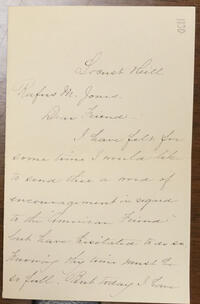 1130
Locust Hill
Rufus M. Jones.
Dear Friend:
I have felt for
some time I would like
to send thee a word of
encouragement in regard
to the "American Friend"
but have hesitated to do so
knowing thy time must be
so full. But today I